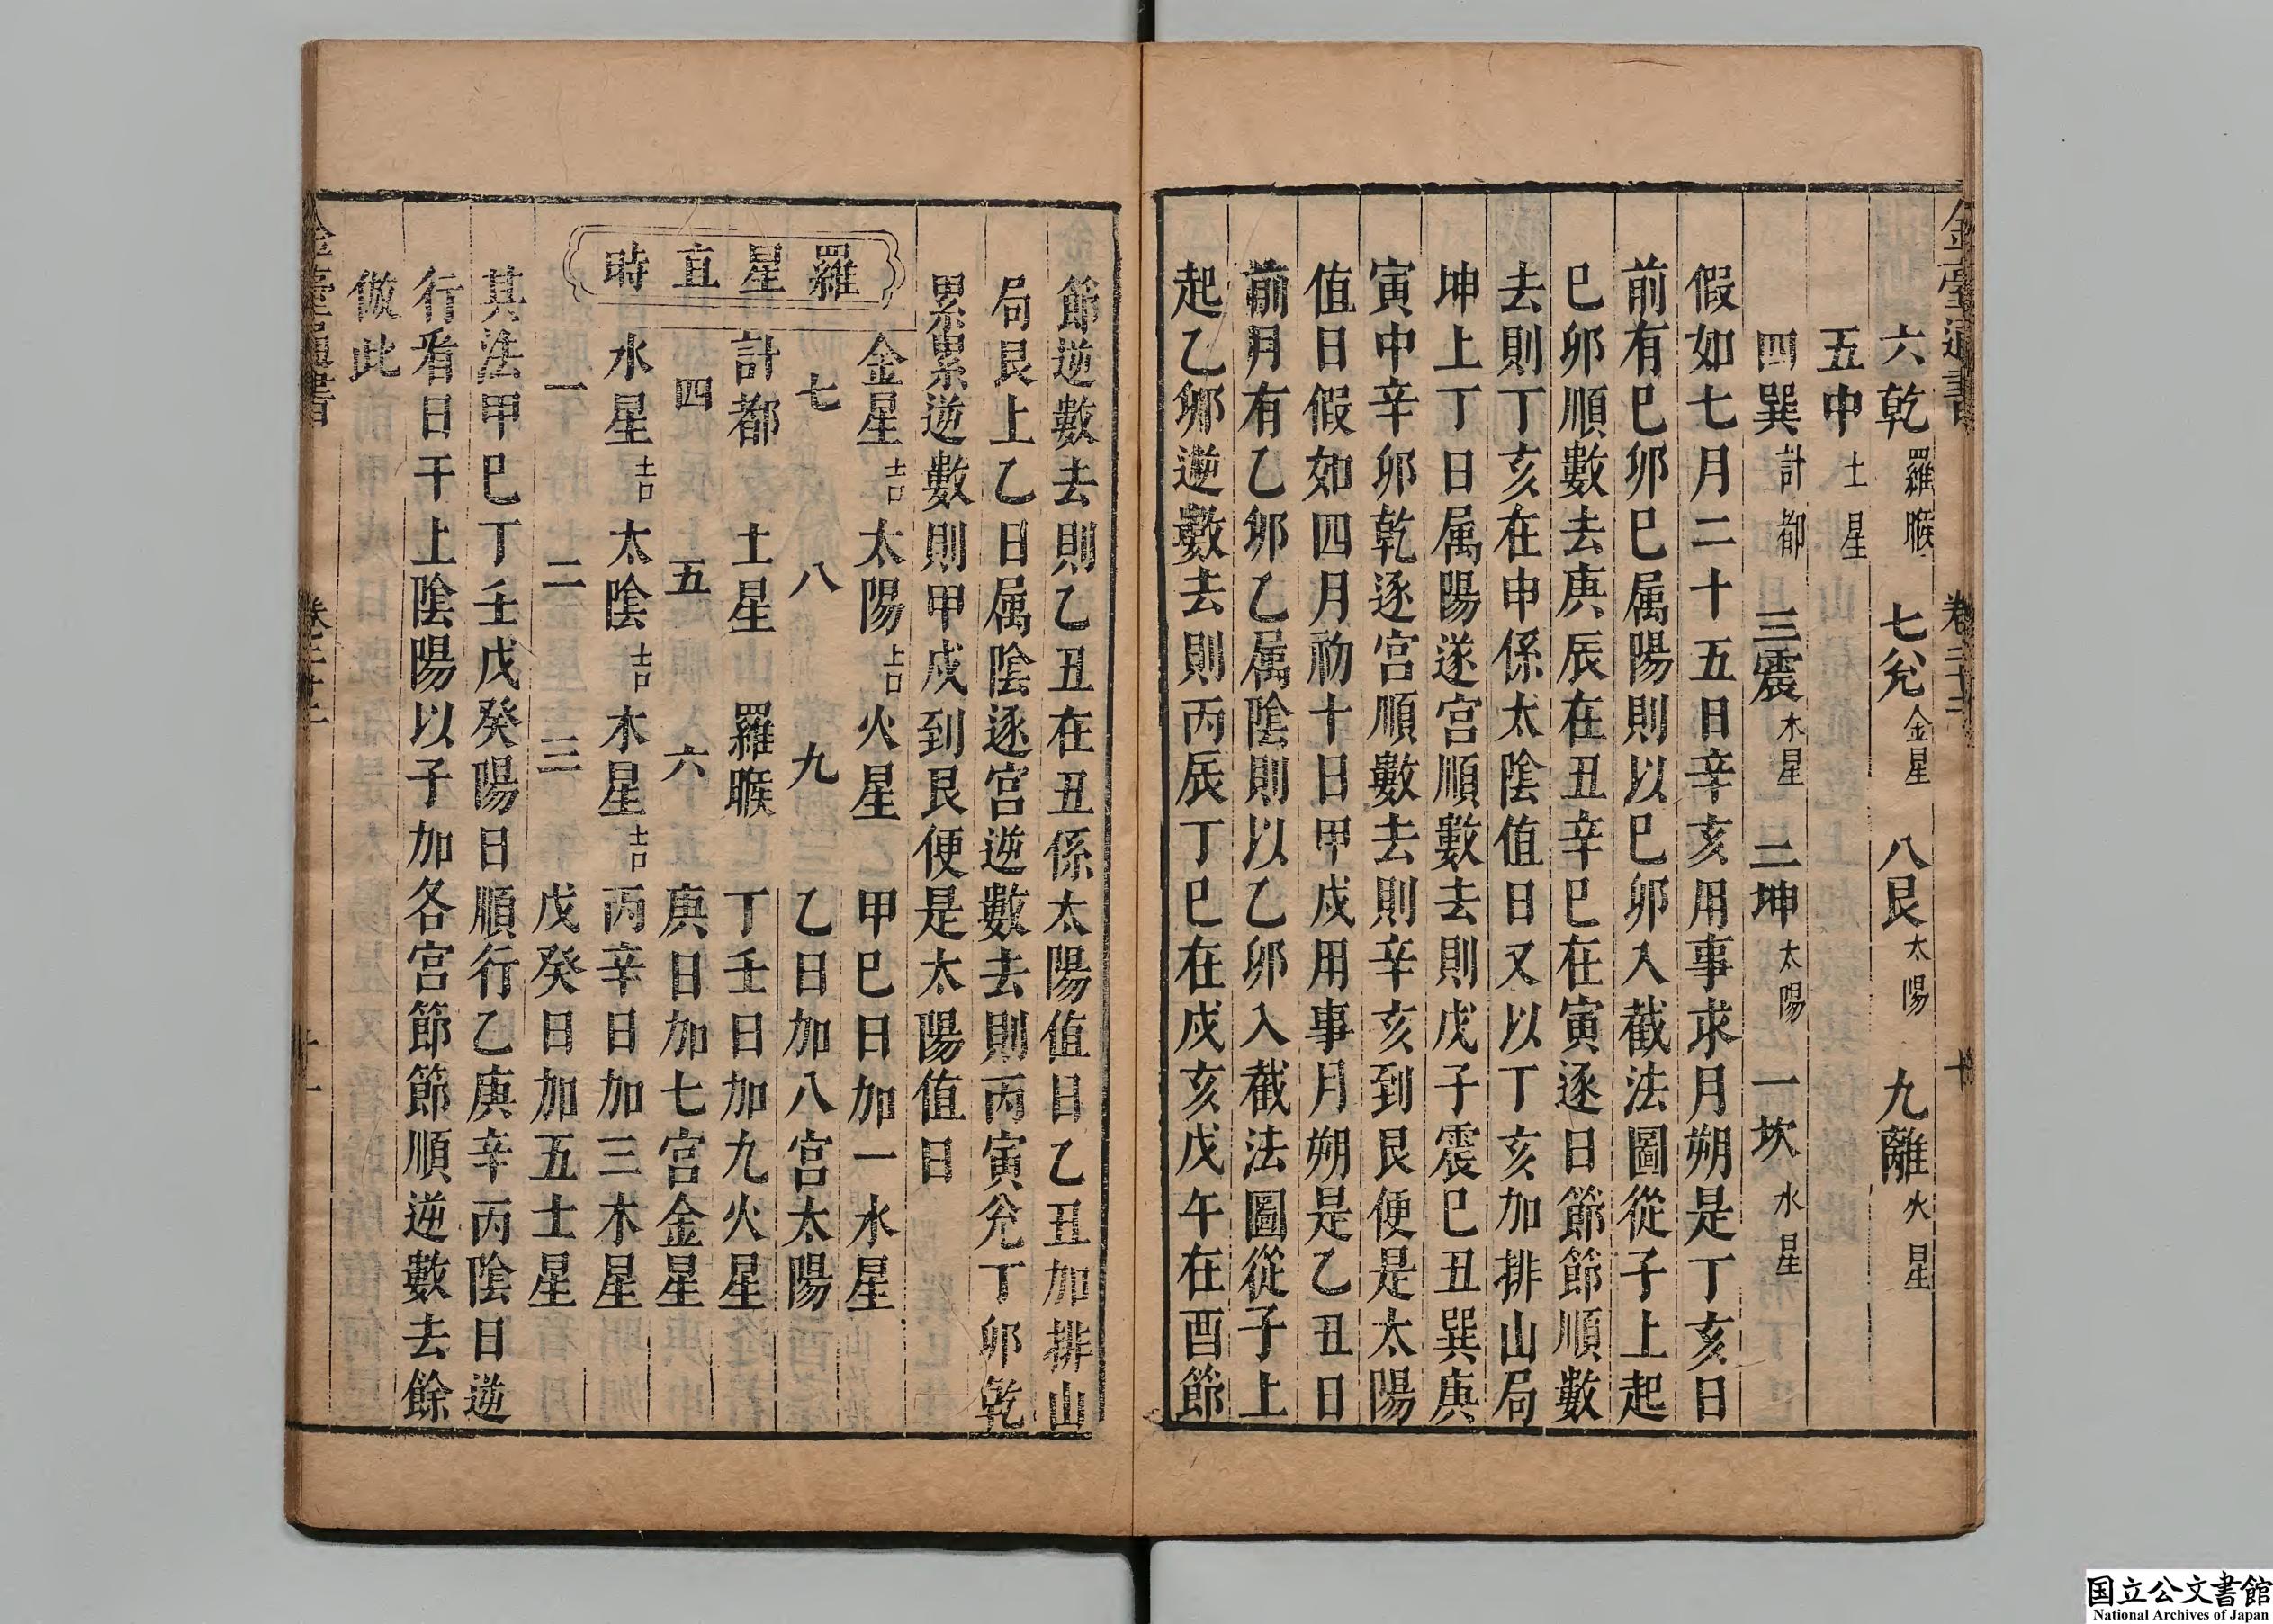 六乾羅睺 七兊金星 八艮太陽 九離火星
五中土星
四巽計都 三震木星 二坤太陽 一坎水星
假如七月二十五日辛亥用事求月朔是丁亥日
前有巳卯巳属陽則以巳卯入截法圖從子上起
巳卯順數去庚辰在丑辛巳在寅逐日節節順數
去則丁亥在申係太陰值日又以丁亥加排山局
坤上丁日属陽遂宫順數去則戊子震巳丑巽庚
寅中辛卯乾逐宫順數去則辛亥到艮便是太陽
值日假如四月初十日甲戌用事月朔是乙丑日
前月有乙卯乙属陰則以乙卯入截法圖從子上
起乙卯逆數去則丙辰丁巳在戌亥戊午在酉節
節逆數去則乙丑在丑係太陽值日乙丑加排山
局艮上乙日属陰逐宫逆數去則丙寅兊丁卯乾
累累逆數則甲戌到艮便是太陽值日
羅星直時
金星吉 太陽上吉 火星 甲巳日加一水星
七 八 九 乙日加八宫太陽
計都 土星 羅睺 丁壬日加九火星
四 五 六 庚日加七宫金星
水星吉 太陰吉 木星吉 丙辛日加三木星
一 二 三 戊癸日加五土星
其法甲巳丁壬戊癸陽日順行乙庚辛丙陰日逆
行看日干上陰陽以子加各宫節節順逆數去餘
倣此
卷二十二
十
国立公文書館
National Archives of Japan